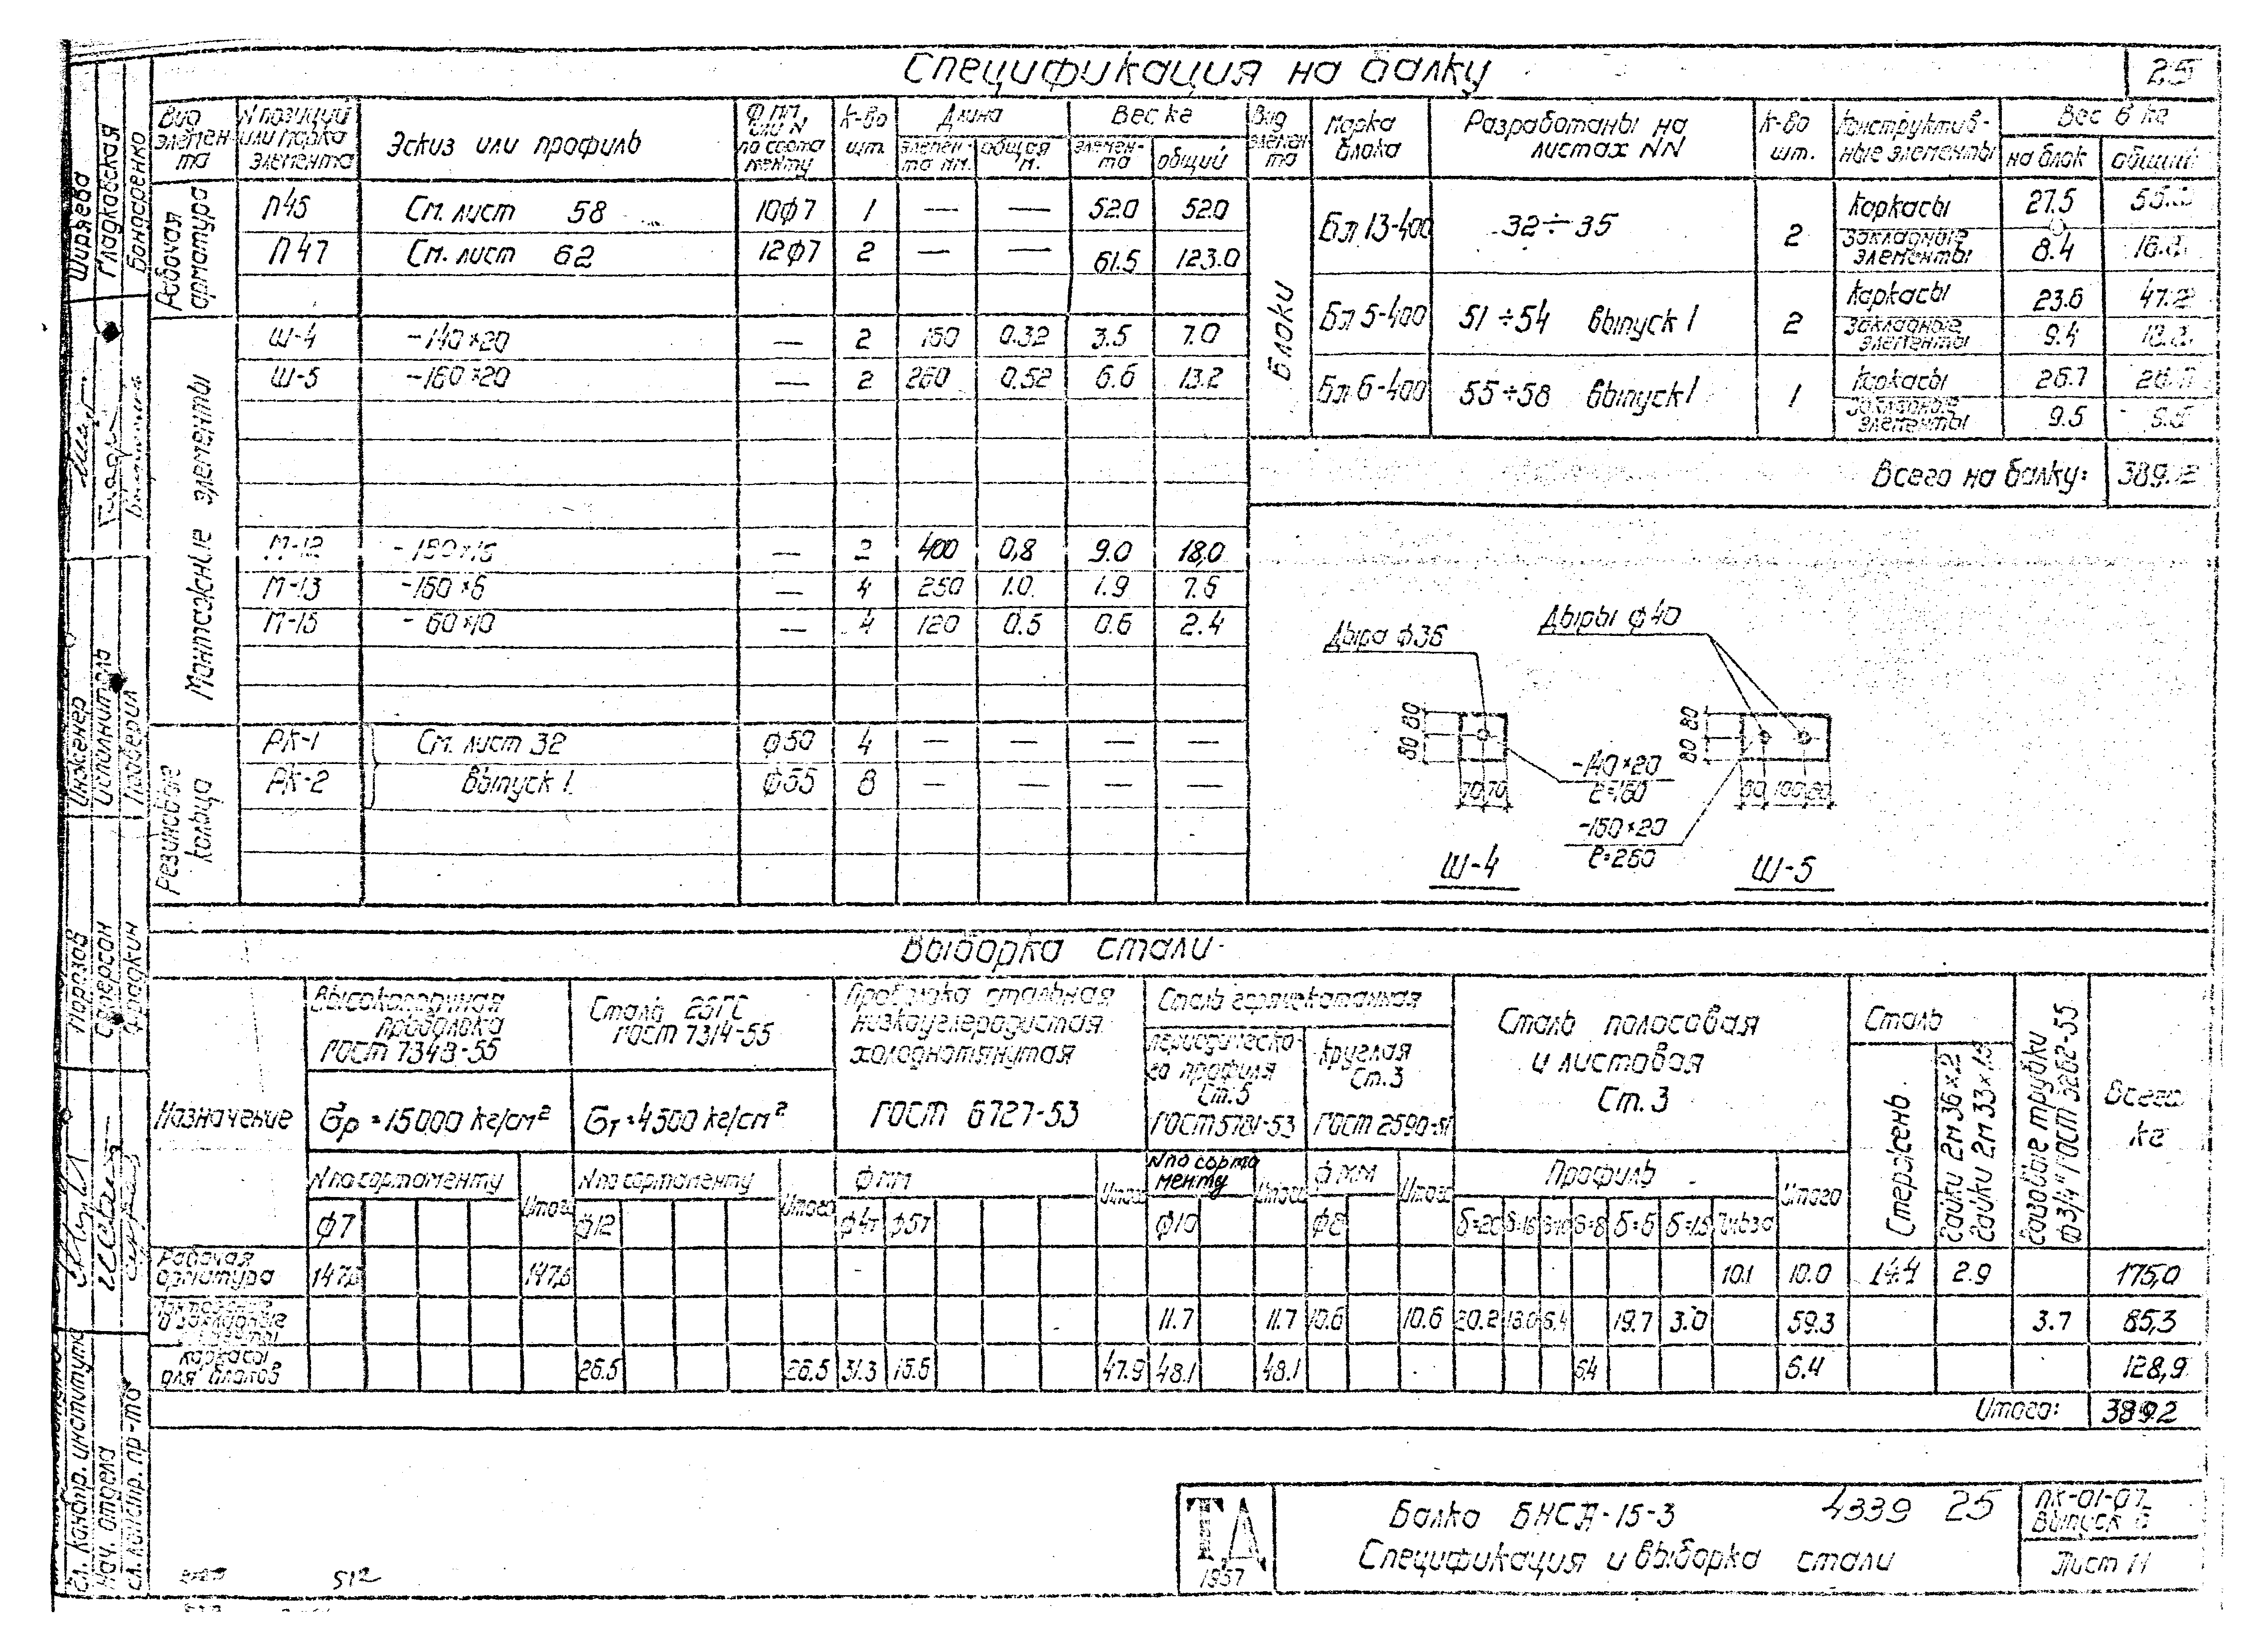 Спецификация на балку
25
Вид элемента
N позиций или марка элемента
Эскиз или профиль
Ф ММ или N по сортаменту
К-во шт.
Длина
элемента мм.
общая м.
Вес кг
элемента
общий
Рабочая арматура
П45 См. лист 58 10ф7 1 — — 52.0 52.0
П47 См. лист 62 12ф7 2 — — 61.5 123.0
Монтажные элементы
Ш-4 -140×20 — 2 160 0.32 3.5 7.0
Ш-5 -160×20 — 2 260 0.52 6.6 13.2
М-12 -180×16 — 2 400 0,8 9.0 18,0
М-13 -160×6 — 4 250 1.0 1.9 7.6
М-15 -60×10 — 4 120 0.5 0.6 2.4
Резиновые кольца
РК-1 См. лист 32 ф50 4 — — — —
РК-2 выпуск 1. ф55 8 — — — —
Вид элемента
Марка блока
Разработаны на листах NN
К-во шт.
Конструктивные элементы
Вес в кг
на блок
общий
Блоки
Бл 13-400 32÷35 2
Каркасы 27.5
Закладные элементы 8.4
Бл 5-400 51÷54 выпуск 1 2
Каркасы 23.6 47.2
Закладные элементы 9.4
Бл 6-400 55÷58 выпуск 1 1
Каркасы 26.7 26.7
Закладные элементы 9.5 9.5
Всего на балку: 389.2
Дыра ф36
Дыры ф40
80 80
80 80
70 70
80 100 80
-140×20
ℓ=160
-160×20
ℓ=260
Ш-4
Ш-5
Выборка стали
Назначение
Высокопрочная проволока ГОСТ 7348-55
бр =15000 кг/см²
N по сортаменту
Итого
ф7
Сталь 25ГС ГОСТ 7314-55
бт =4500 кг/см²
N по сортаменту
Итого
ф12
Проволока стальная низкоуглеродистая холоднотянутая
ГОСТ 6727-53
ф мм
Итого
ф4т ф5т
Сталь горячекатанная
периодического профиля Ст.5
ГОСТ 5781-53
N по сортаменту
Итого
ф10
круглая Ст.3
ГОСТ 2590-51
ф мм
Итого
ф8
Сталь полосовая и листовая Ст.3
Профиль
Итого
δ=20 δ=16 δ=10 δ=8 δ=6 δ=1.5
Сталь
Стержень
Гайки 2м 36×2
Гайки 2м 33×1.5
Газовые трубки ф3/4" ГОСТ 3262-55
Всего кг
Рабочая арматура 147,6 147,6 10.1 10.0 14.4 2.9 175,0
11.7 11.7 10.6 10.6 20.2 6.4 19.7 3.0 59.3 3.7 85,3
Каркасы для блоков 26.5 26.5 31.3 16.6 47.9 48.1 48.1 6.4 6.4 128,9
Итого: 389.2
ТД
1957
Балка БНСД-15-3 4339 25
Спецификация и выборка стали
ПК-01-07
Выпуск
Лист 11
512
Ширяева
Гладковская
Бондаренко
Инженер
Исполнитель
Проверил
Морозов
Фрадкин
Гл. констр. института
Нач. отдела
Гл. констр. пр-та